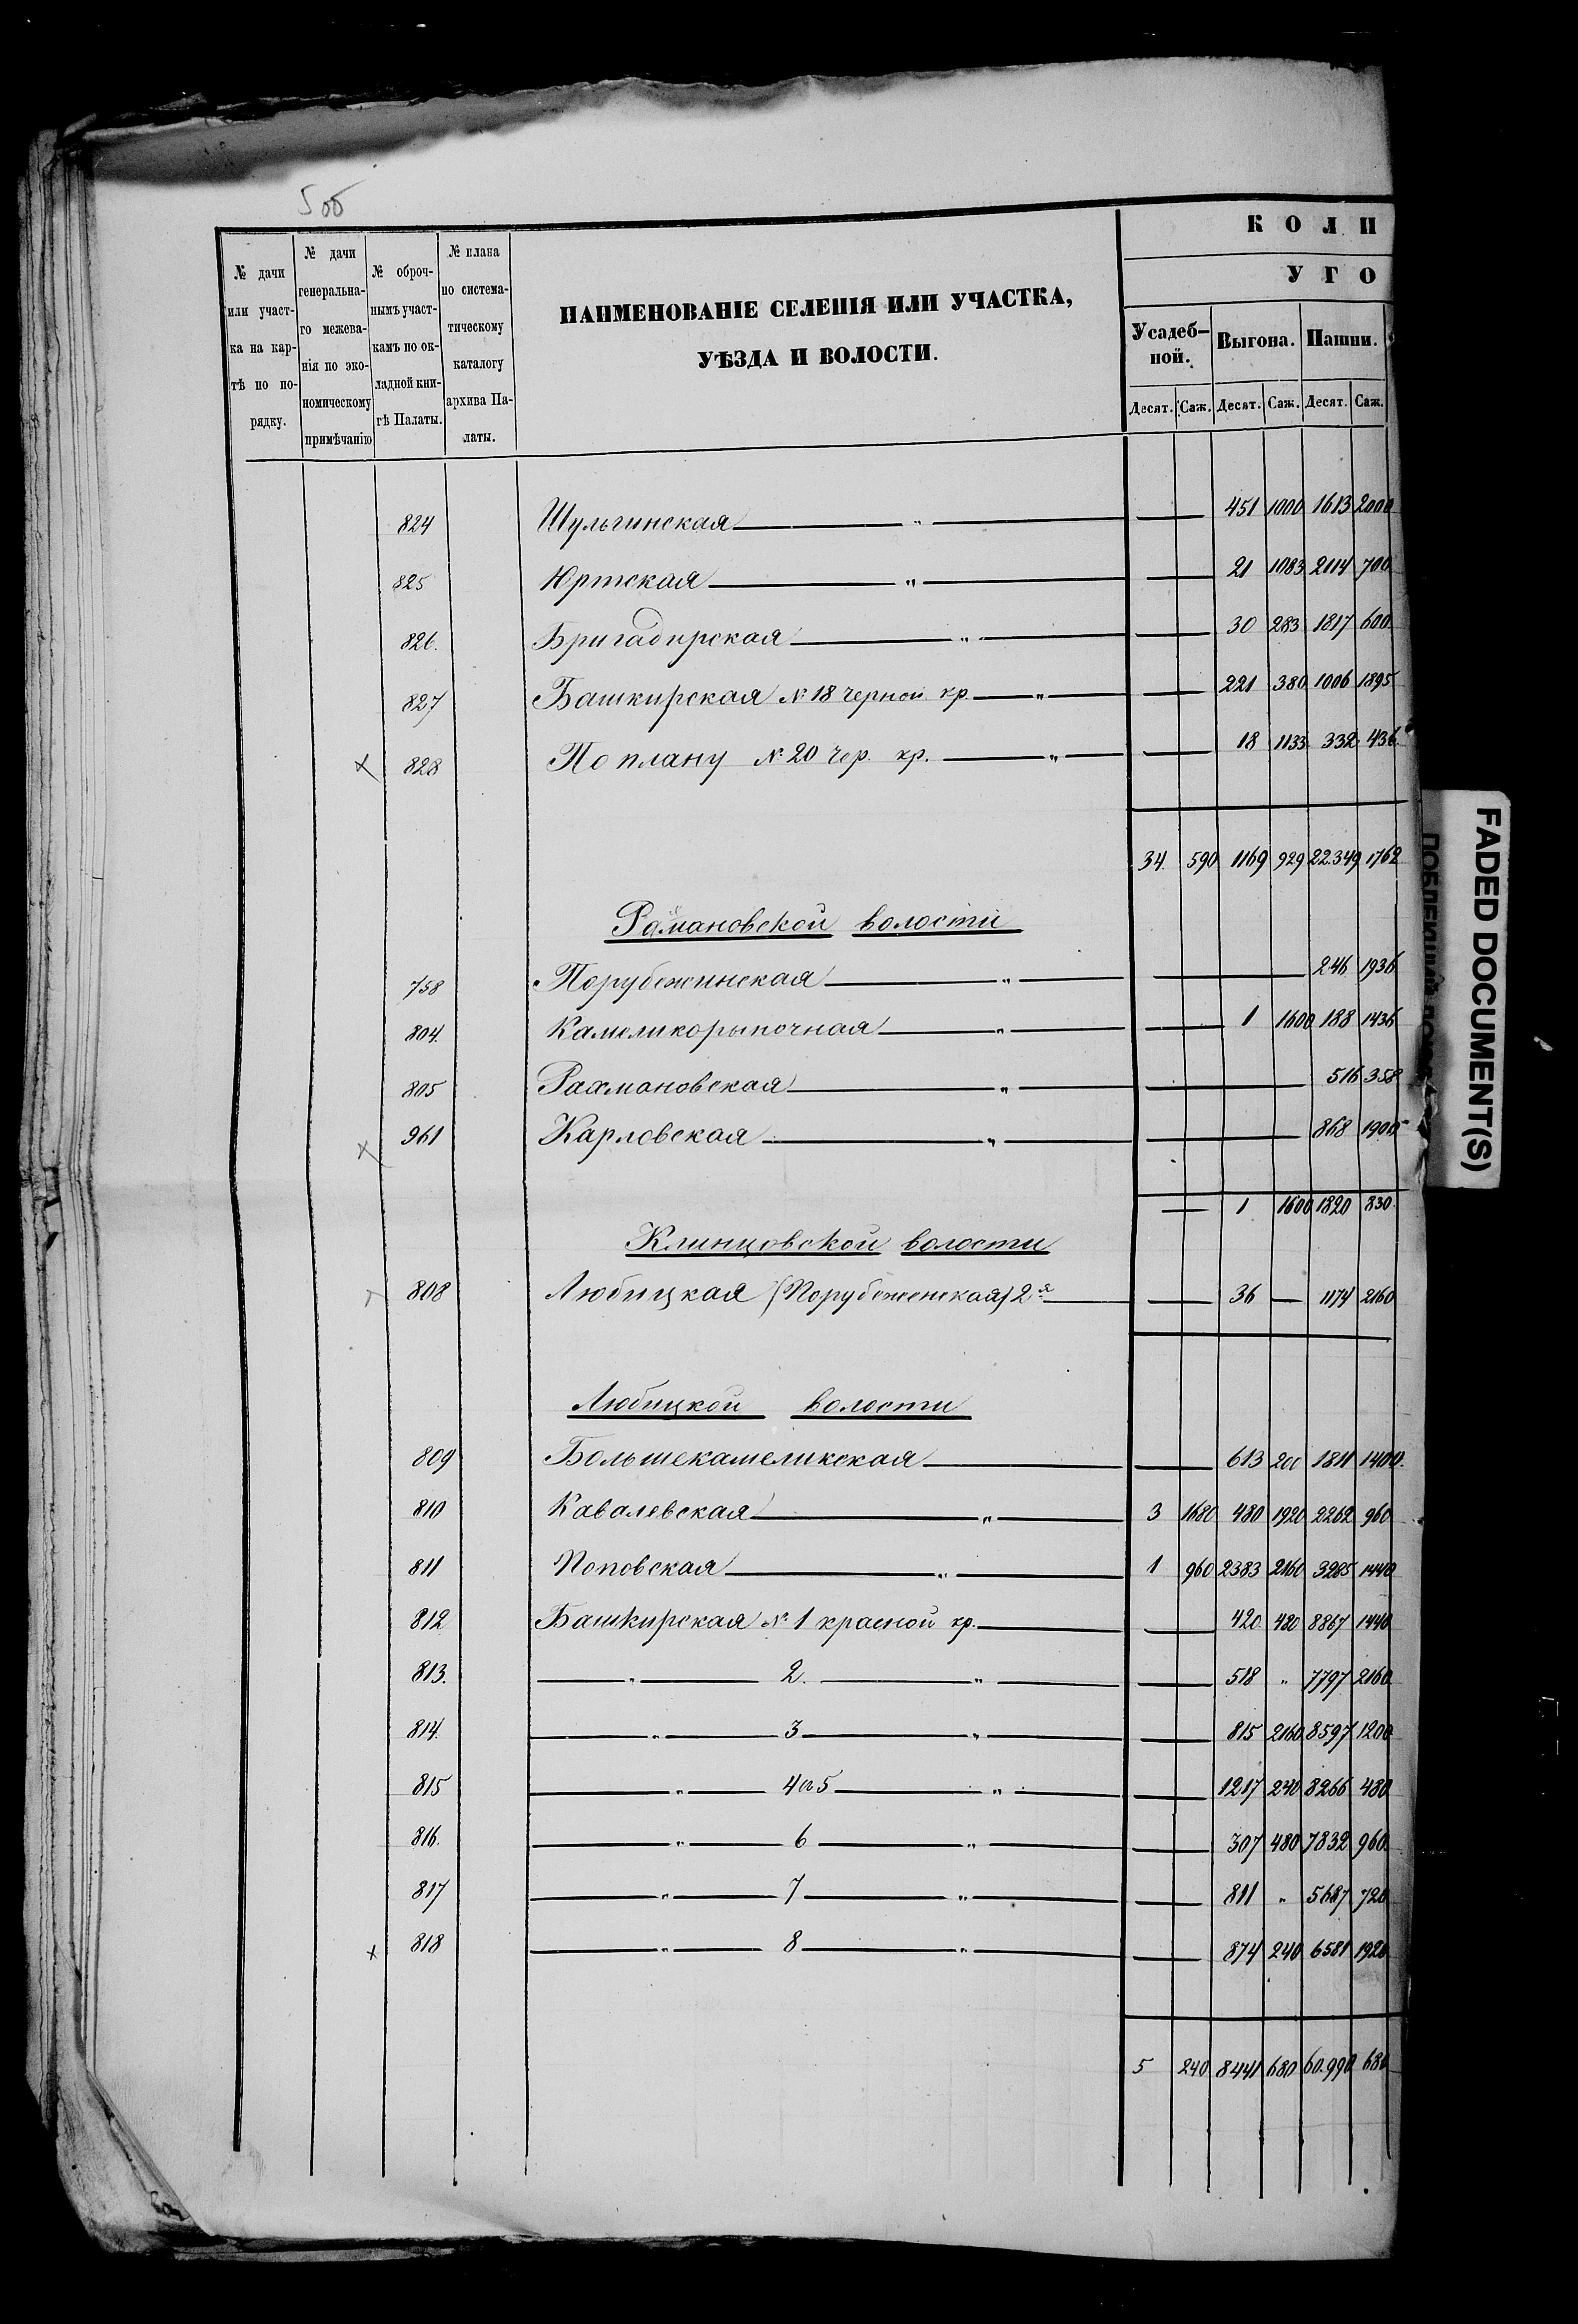 5 об
№ дачи или участка на картѣ по порядку.
№ дачи генеральнаго межеванія по экономическому примѣчанію
№ оброчнымъ участкамъ по окладной книгѣ Палаты.
№ плана по систематическому каталогу архива Палаты.
НАИМЕНОВАНІЕ СЕЛЕНІЯ ИЛИ УЧАСТКА,
УѢЗДА И ВОЛОСТИ.
КОЛИ
УГО
Усадебной. Выгона. Пашни.
Десят. Саж. Десят. Саж. Десят. Саж.
824 Шульгинская — „ — — 451 1000 1613 2000
825 Юртская — „ — — 21 1083 2114 700
826. Бригадирская — „ — — 30 283 1817 600
827 Башкирская № 18 черной кр. — „ — — 221 380 1006 1895
× 828 По плану № 20 чер. кр. — „ — — 18 1133 332 436
34. 590 1169 929 22.349 1762
Рахмановской волости
758 Порубежинская — „ — — 246 1936
804. Камеликорыночная — „ — — 1 1600 188 1436
805 Рахмановская — „ — — 516 358
× 961 Карловская — „ — — 868 1900
— 1 1600 1820 830
Клинцовской волости
808 Любицкая (Порубеженская) 2я — — 36 — 1174 2160
Любицкой волости
809 Большекамеликская — — 613 200 1811 1400.
810 Кавалевская — „ — 3 1680 480 1920 2262 960
811 Поповская — „ — 1 960 2383 2160 3285 1440
812 Башкирская № 1 красной кр. — — 420 480 8867 1440
813. — „ — 2. — „ — — 518 „ 7797 2160
814. — „ — 3 — „ — — 815 2160 8597 1200
815 — „ — 4 и 5 — „ — — 1217 240 8266 480
816. — „ — 6 — „ — — 307 480 7832 960
817 — „ — 7 — „ — — 811 „ 5687 720
× 818 — „ — 8 — „ — — 874 240 6581 1920
5 240 8441 680 60.990 680
FADED DOCUMENT(S)